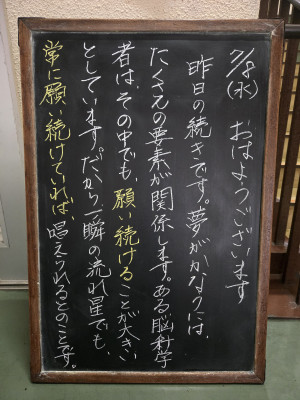 7/8(水) おはようございます
昨日の続きです。夢がかなうには、
たくさんの要素が関係します。ある脳科学
者は、その中でも、願い続けることが大きい
としています。だから、一瞬の流れ星でも、
常に願い続けていれば、唱えられるとのことです。